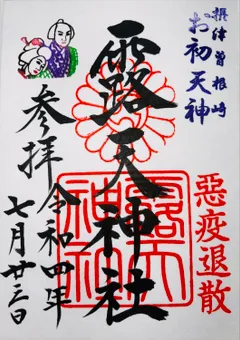 摂津曽根崎
お初天神
露天神社
惡疫退散
参拝
令和四年
七月廿三日
露天
神社